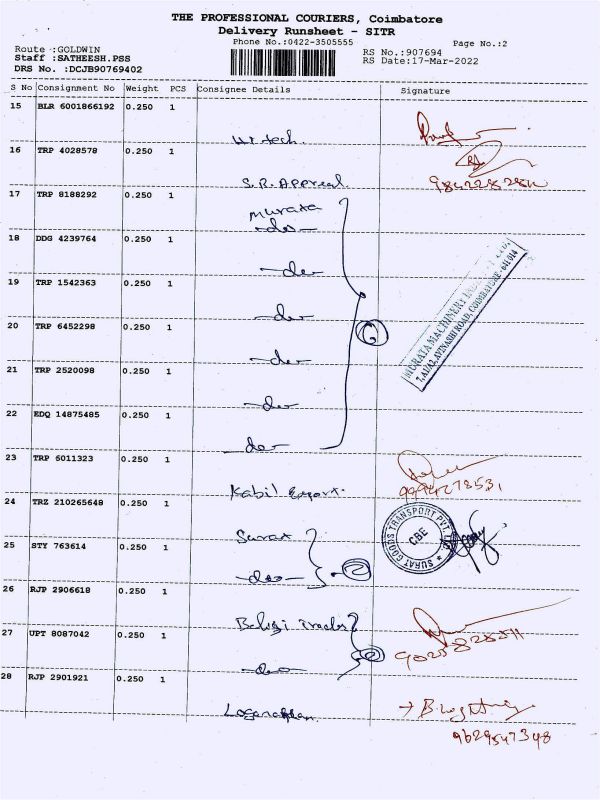 THE PROFESSIONAL COURIERS, Coimbatore
Delivery Runsheet - SITR
Phone No.:0422-3505555
Page No.:2
Route :GOLDWIN
Staff :SATHEESH.PSS
DRS No. :DCJB90769402
RS No.:907694
RS Date:17-Mar-2022
S No Consignment No Weight PCS Consignee Details Signature
15 BLR 6001866192 0.250 1
16 TRP 4028578 0.250 1
S.R. Appreal
17 TRP 8188292 0.250 1
Murata
-do-
18 DDG 4239764 0.250 1
-do-
19 TRP 1542363 0.250 1
-do-
20 TRP 6452298 0.250 1
-do-
21 TRP 2520098 0.250 1
-do-
22 EDQ 14875485 0.250 1
-do-
6
MURATA MACHINERY
7, A1/A2, AVINASHI ROAD, COIMBATORE - 641 014
23 TRP 6011323 0.250 1
Kabil Export.
9994278531
24 TRZ 210265648 0.250 1
Surat
25 STY 763614 0.250 1
-do-
2
SURAT GOODS TRANSPORT PVT. LTD.
CBE
26 RJP 2906618 0.250 1
Balaji
27 UPT 8087042 0.250 1
-do-
2
28 RJP 2901921 0.250 1
9629547348